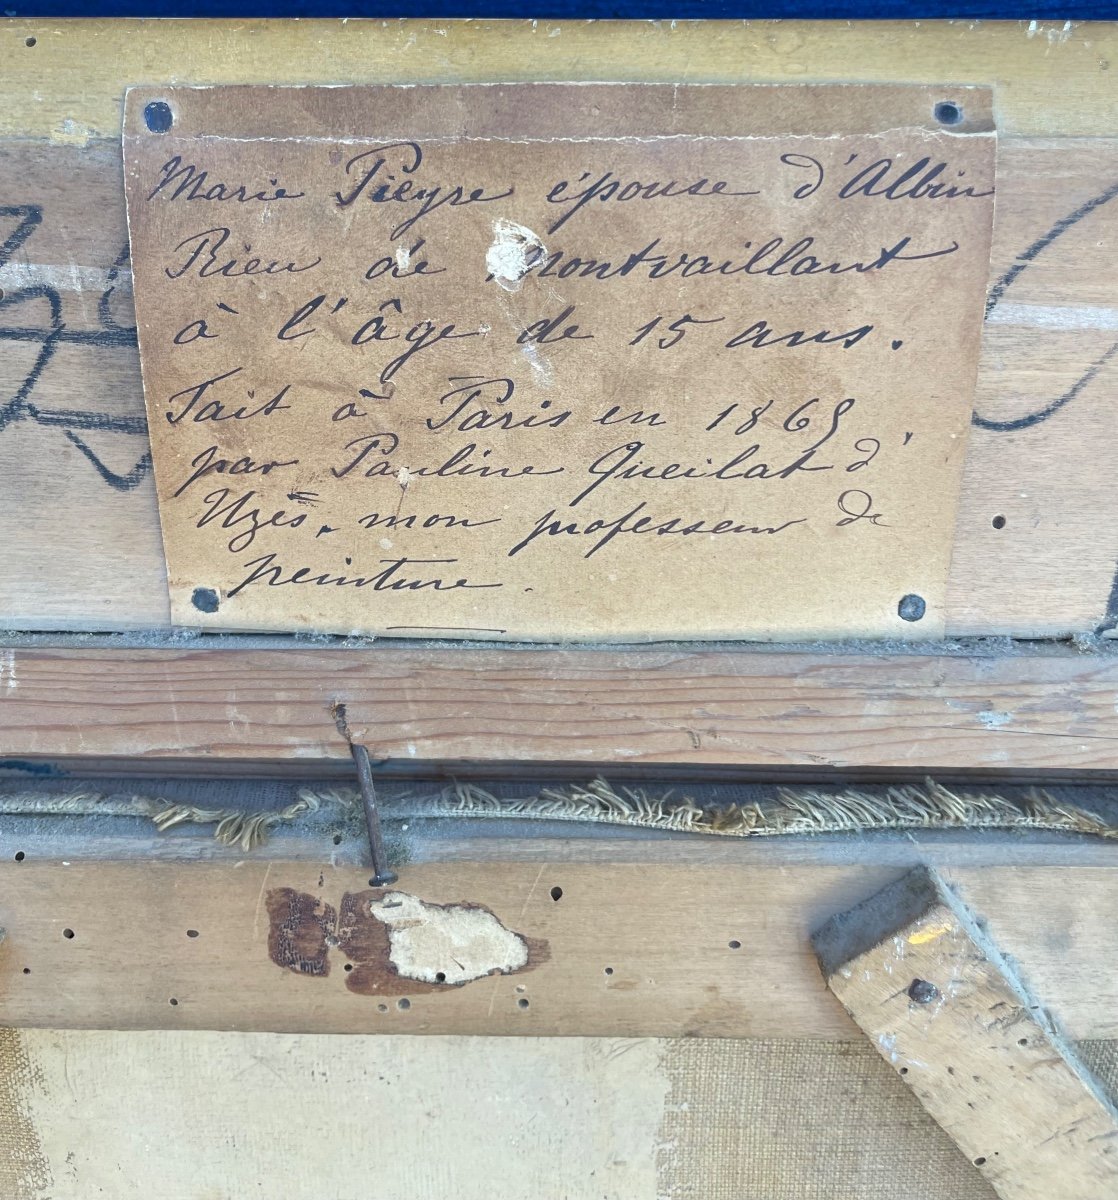 Marie Pieyre épouse d'Albin
Rieu de Montvaillant
à l'âge de 15 ans.
Fait à Paris en 1865
par Pauline Queilat d'
Uzès, mon professeur de
peinture.